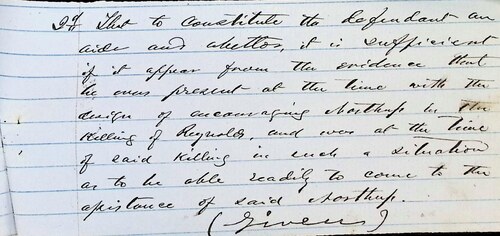 2d That to constitute the defendant an
aider and abettor, it is sufficient
if it appear from the evidence that
he was present at the time with the
design of encouraging Northup in the
killing of Reynolds, and was at the time
of said killing in such a situation
as to be able readily to come to the
assistance of said Northup.
(Given)